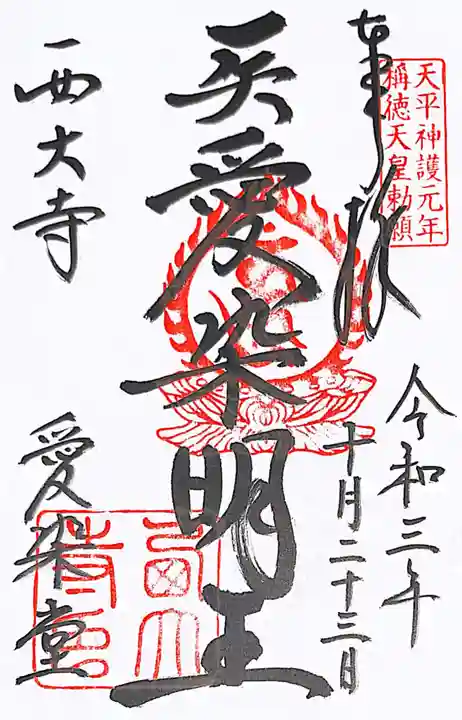 奉拝
天平神護元年
稱徳天皇勅願
令和三年
十月二十三日
愛染明王
西大寺
愛染堂
西大
寺印